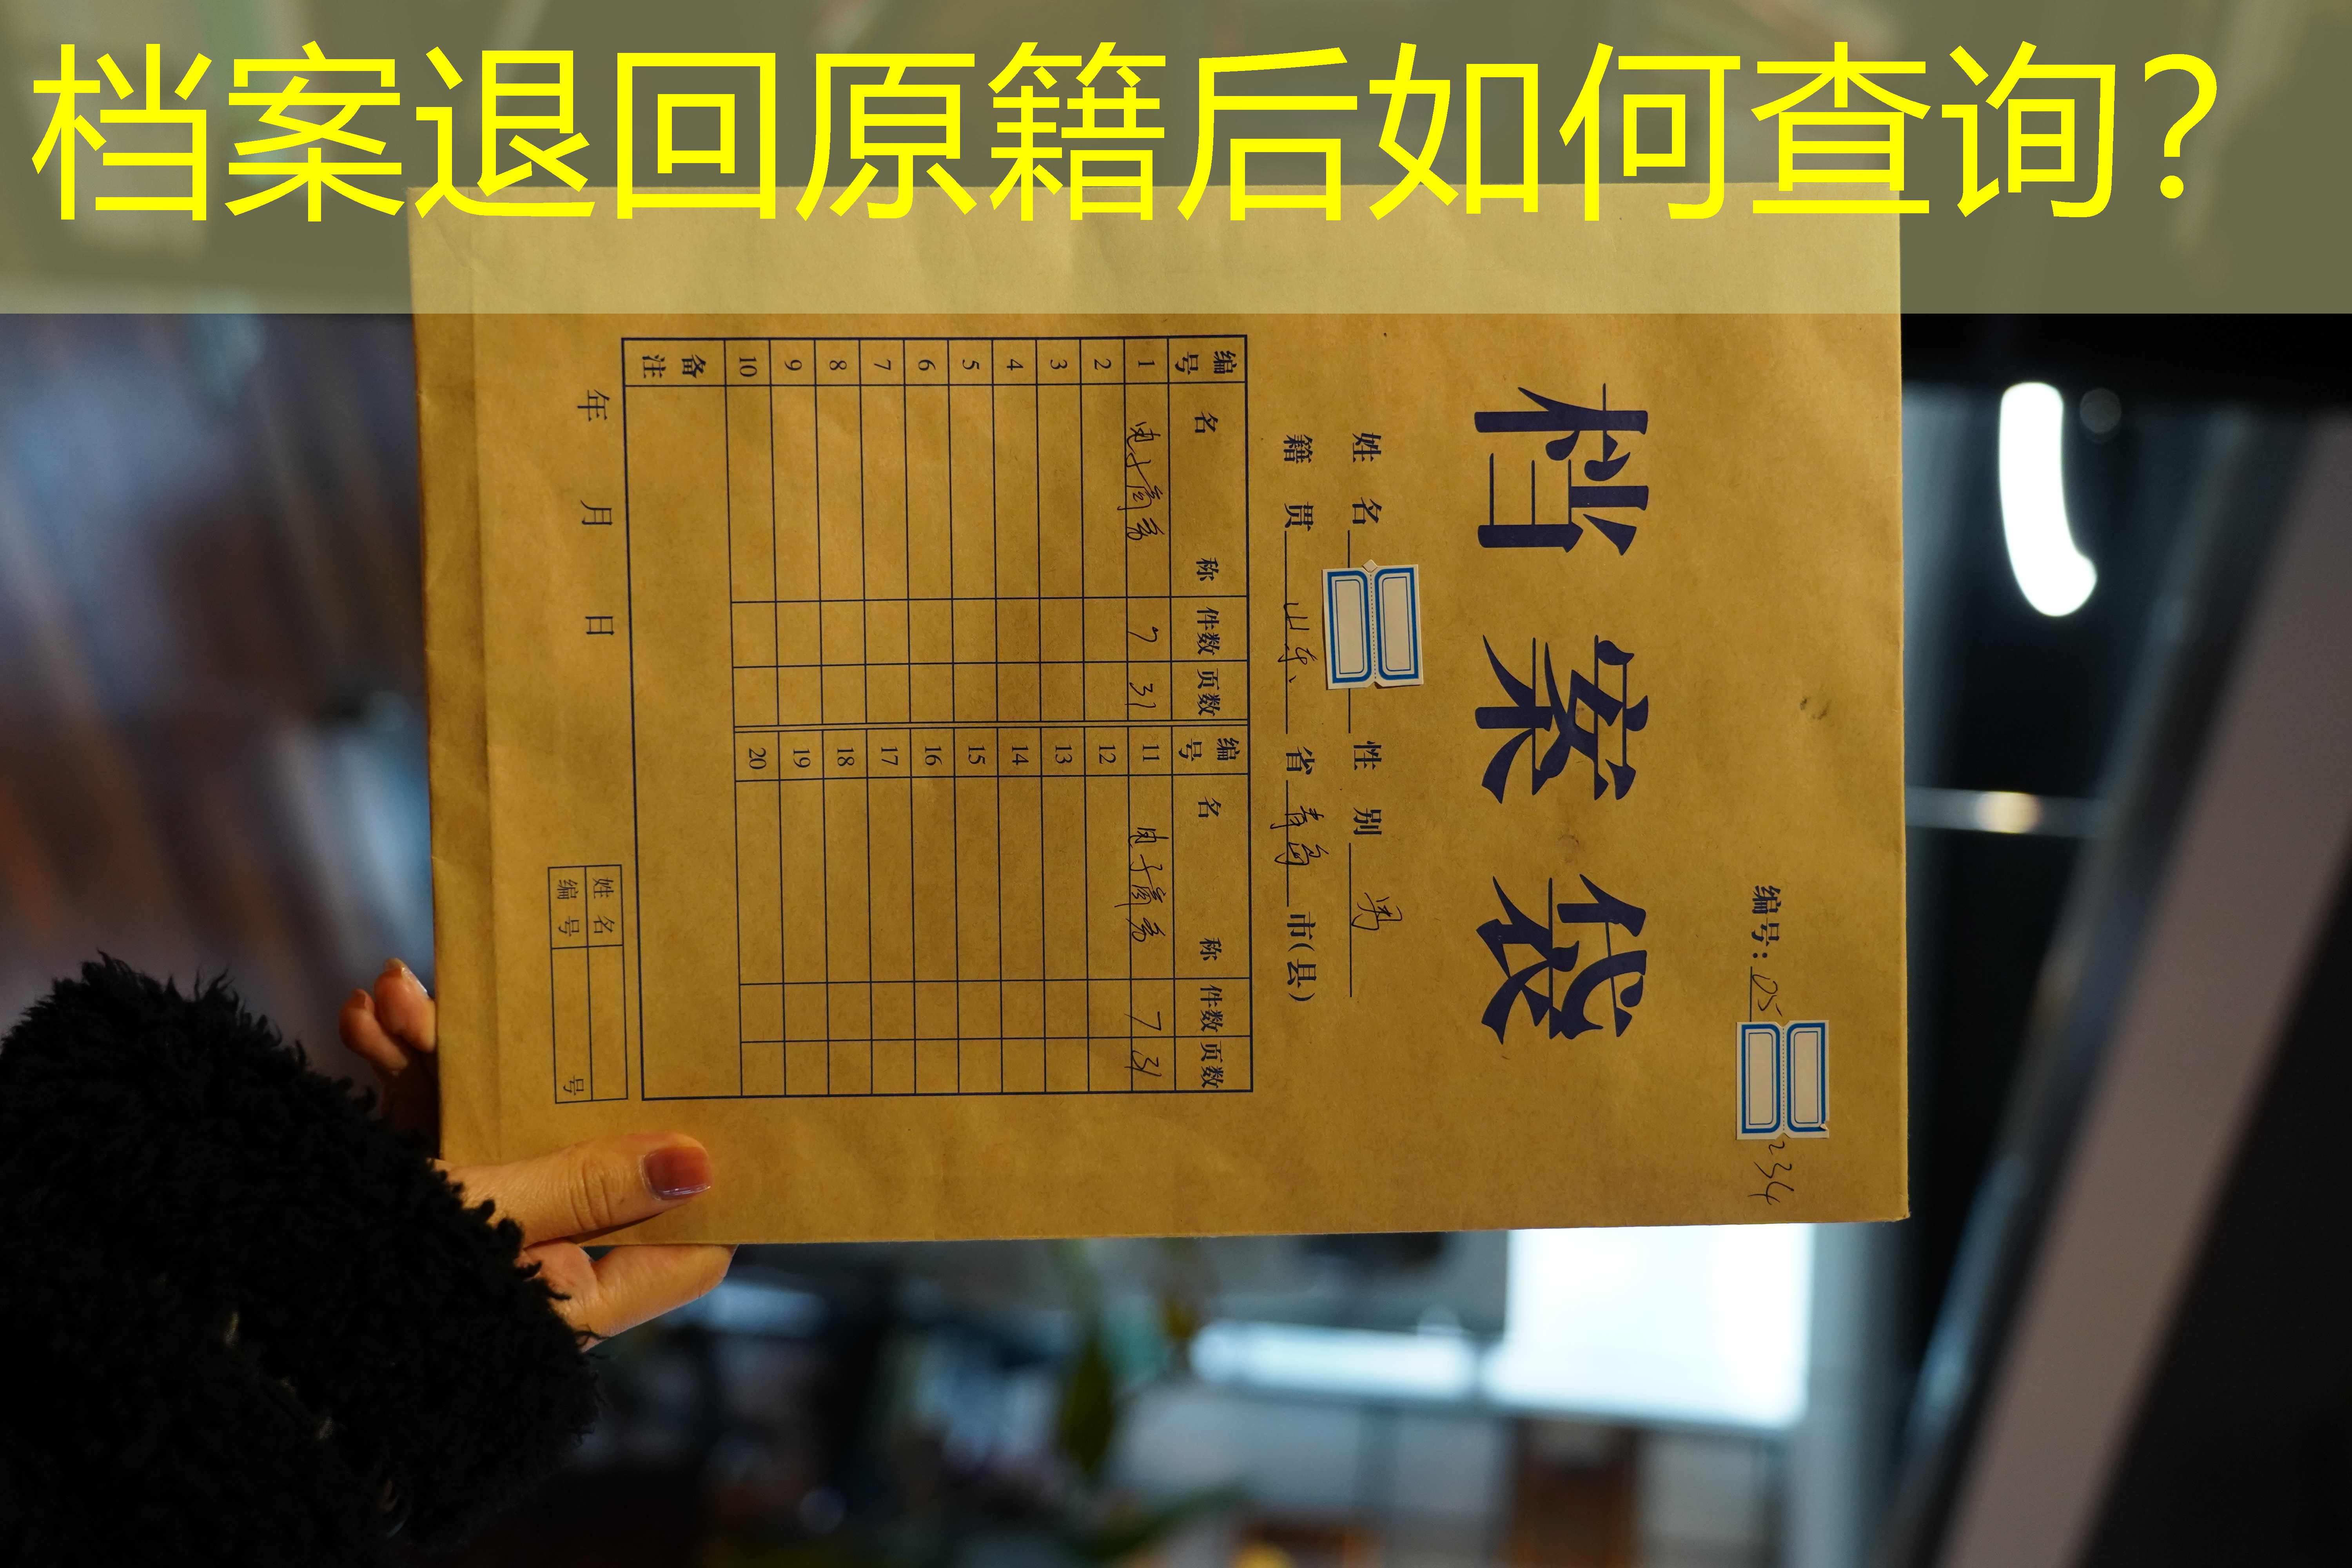 档案退回原籍后如何查询?
编号: 05 234
档案袋
姓名 性别 男
籍贯 山东 省 青岛 市(县)
编号 名称 件数 页数 编号 名称 件数 页数
1 7 31 11 7 31
2 12
3 13
4 14
5 15
6 16
7 17
8 18
9 19
10 20
备注
年 月 日
姓名
编号 号